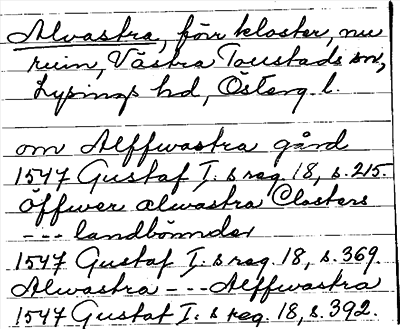 Alvastra, förr kloster, nu
ruin, Västra Toustads sn,
Lysings hd, Österg. l.
om Aleffwastra gård
1547 Gustaf I:s reg. 18, s. 215.
Öffwer alwastra Closters
--- landbönnder
1547 Gustaf I:s reg. 18, s. 369.
Alwastra --- Aleffwastra
1547 Gustaf I:s reg. 18, s. 392.